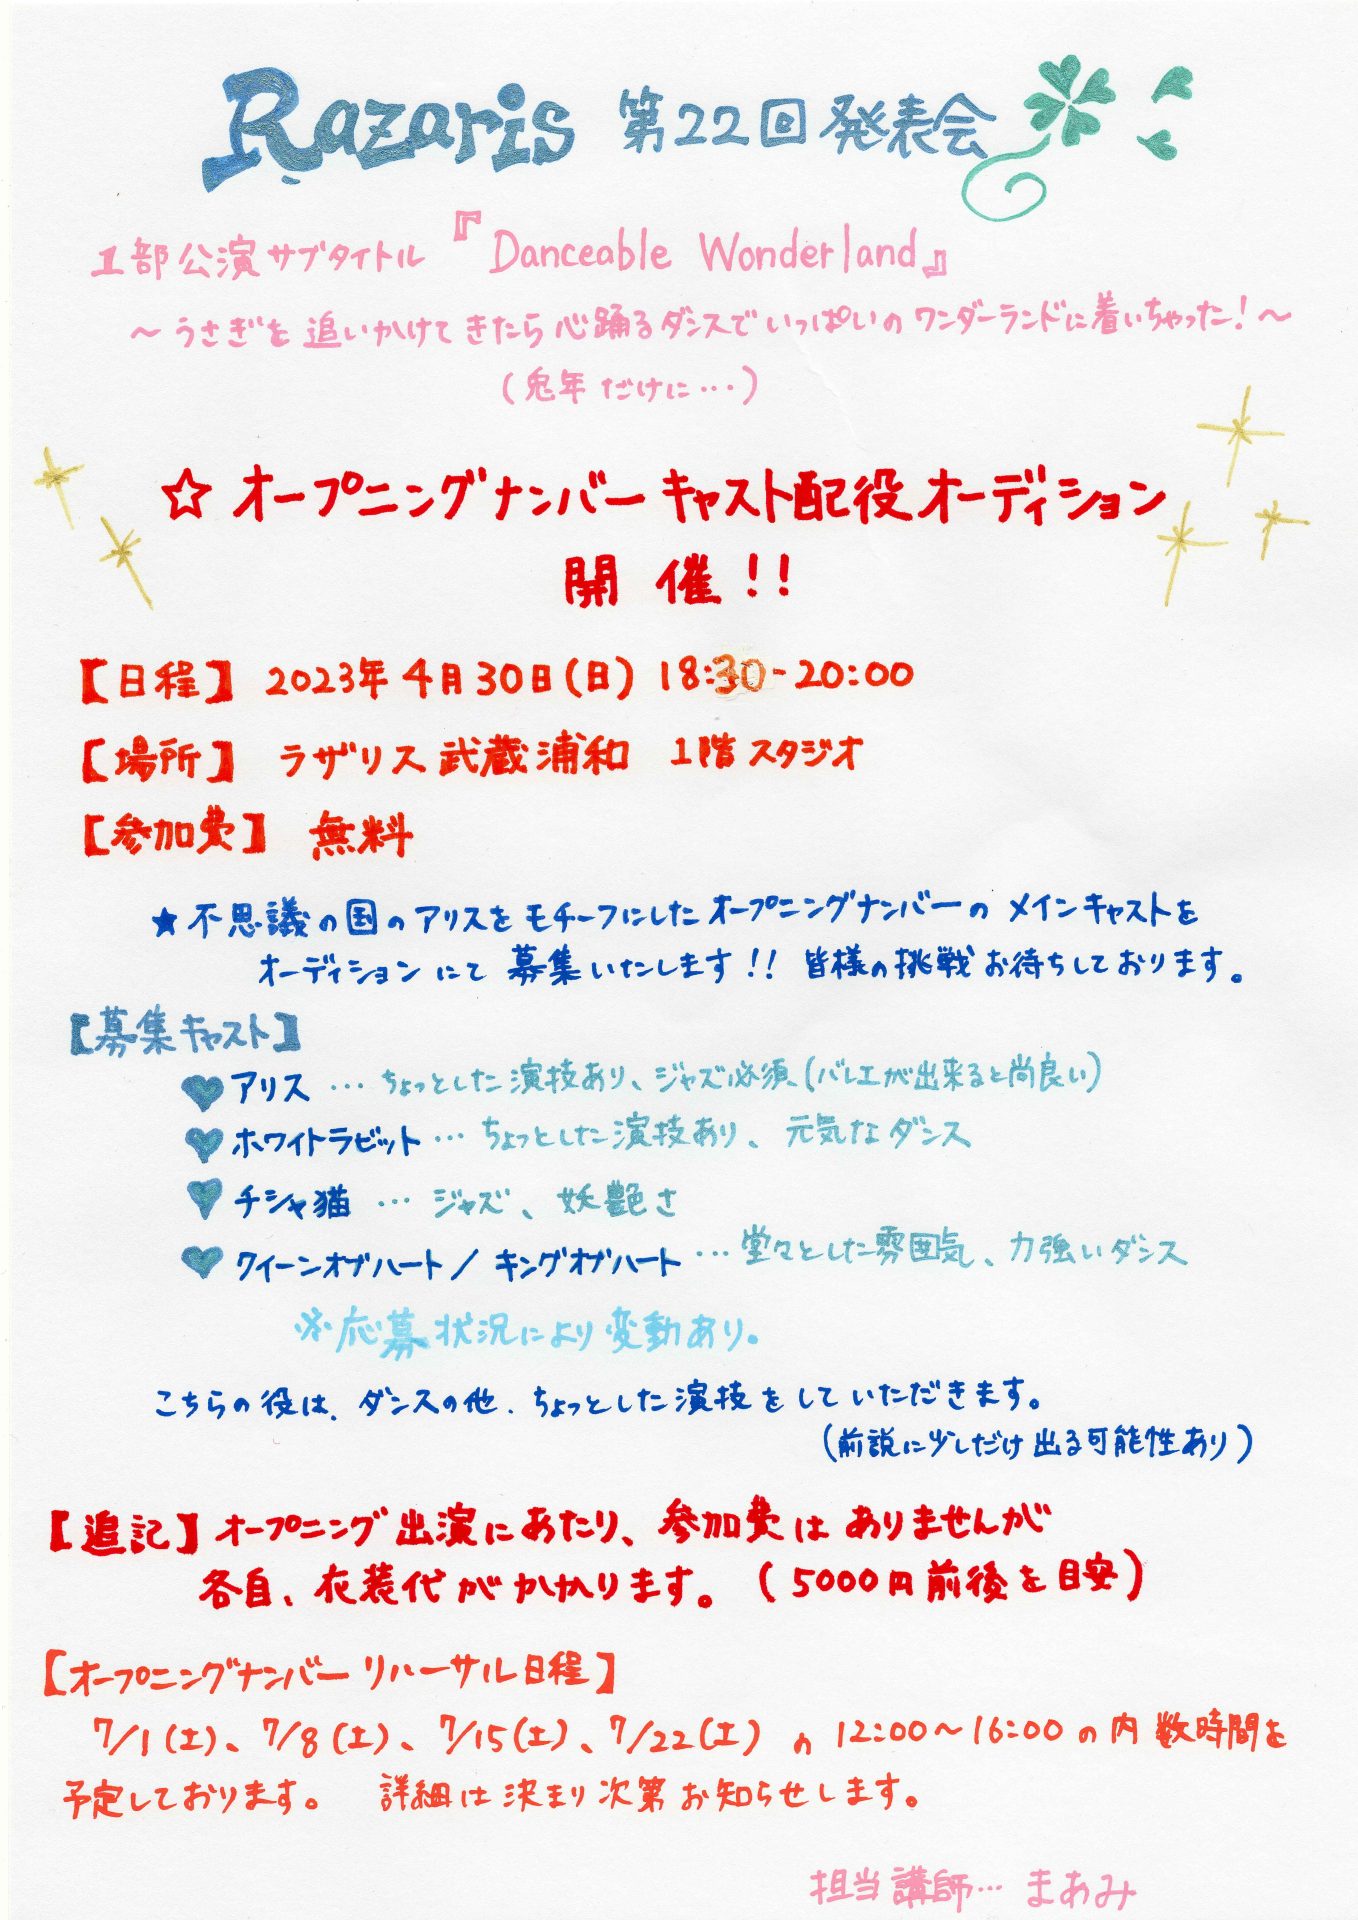 Razaris 第22回発表会
1部公演サブタイトル『Danceable Wonderland』
～うさぎを追いかけてきたら心踊るダンスでいっぱいのワンダーランドに着いちゃった！～
(兎年だけに…)
☆オープニングナンバーキャスト配役オーディション
開催!!
【日程】 2023年4月30日(日) 18:30-20:00
【場所】 ラザリス武蔵浦和 1階スタジオ
【参加費】 無料
★不思議の国のアリスをモチーフにしたオープニングナンバーのメインキャストを
オーディションにて募集いたします!! 皆様の挑戦お待ちしております。
【募集キャスト】
♥アリス…ちょっとした演技あり、ジャズ必須(バレエが出来ると尚良い)
♥ホワイトラビット…ちょっとした演技あり、元気なダンス
♥チシャ猫…ジャズ、妖艶さ
♥クイーンオブハート/キングオブハート…堂々とした雰囲気、力強いダンス
※応募状況により変動あり。
こちらの役は、ダンスの他、ちょっとした演技をしていただきます。
(前説に少しだけ出る可能性あり)
【追記】オープニング出演にあたり、参加費はありませんが
各自、衣装代がかかります。(5000円前後を目安)
【オープニングナンバーリハーサル日程】
7/1(土)、7/8(土)、7/15(土)、7/22(土)の12:00～16:00の内数時間を
予定しております。 詳細は決まり次第お知らせします。
担当講師…まあみ